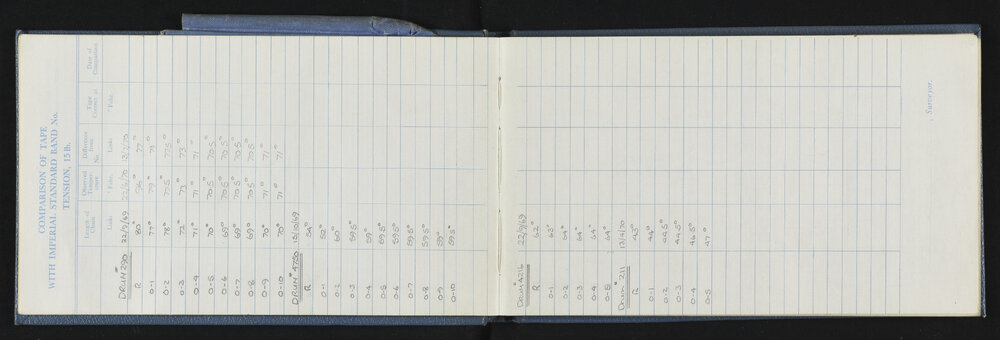 COMPARISON OF TAPE
WITH IMPERIAL STANDARD BAND No.
TENSION, 15 lb.
Length of Chain Observed Temperature Difference from No. Tape Correct at Date of Comparison
Links ° Fahr. Links ° Fahr.
DRUM 290 22/9/69 22/2/70 13/7/70
R 80° 77°
0-1 77° 79° 79°
0-2 78° 77.5° 77.5°
0-3 72° 73° 73°
0-4 71° 71° 71°
0-5 70° 70.5° 70.5°
0-6 69° 70.5° 70.5°
0-7 69° 70.5° 70.5°
0-8 69° 70.5° 70.5°
0-9 70° 71° 71°
0-10 70° 71° 71°
DRUM 4750 13/10/69
R 54°
0-1 52°
0-2 60°
0-3 59.5°
0-4 59°
0-5 59.5°
0-6 59.5°
0-7 59.5°
0-8 59.5°
0-9 59°
0-10 59.5°
DRUM 4216 22/9/69
R 62°
0-1 63°
0-2 64°
0-3 64°
0-4 64°
0-5 64°
Drum 211 13/7/70
R 43°
0-1 44°
0-2 44.5°
0-3 44.5°
0-4 46.5°
0-5 47°
, Surveyor.